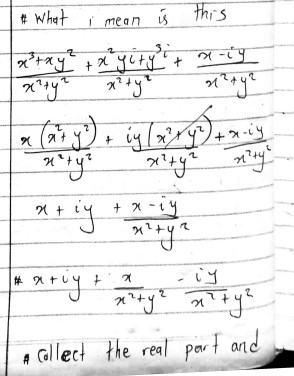 # What i mean is this
x³+xy²/x²+y² + x²yi+y³i/x²+y² + x-iy/x²+y²
x(x²+y²)/x²+y² + iy(x²+y²)/x²+y² + x-iy/x²+y²
x + iy + x-iy/x²+y²
# x+iy + x/x²+y² - iy/x²+y²
# Collect the real part and